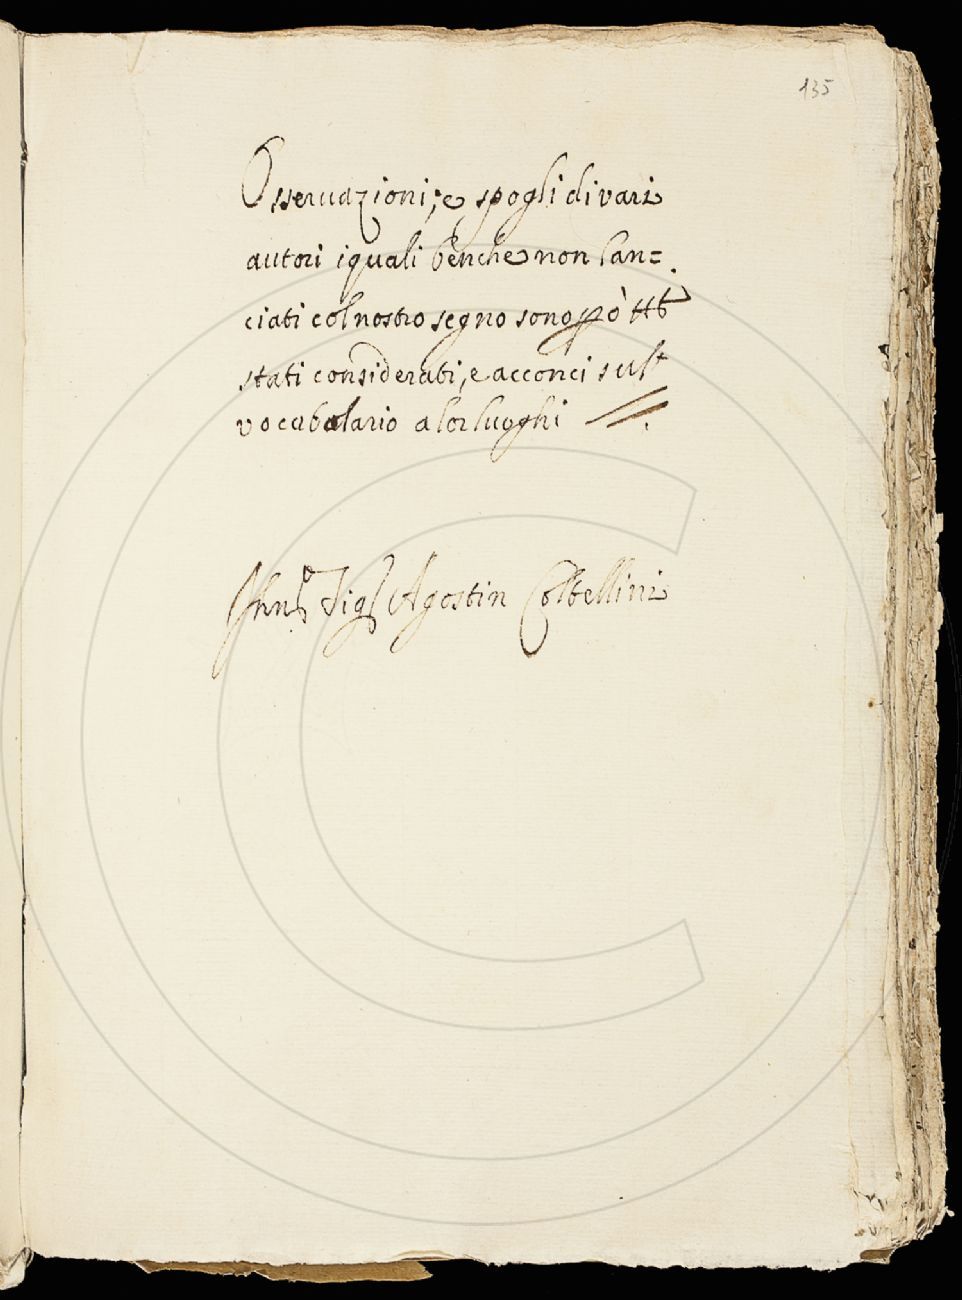 135
Osseruazioni, e spogli di vari
autori i quali benche non lan=
ciati col nostro segno sono pò tt.i
stati considerati, e acconci sul
vocabolario a lor luoghi
Sig.r Agostin Coltellini